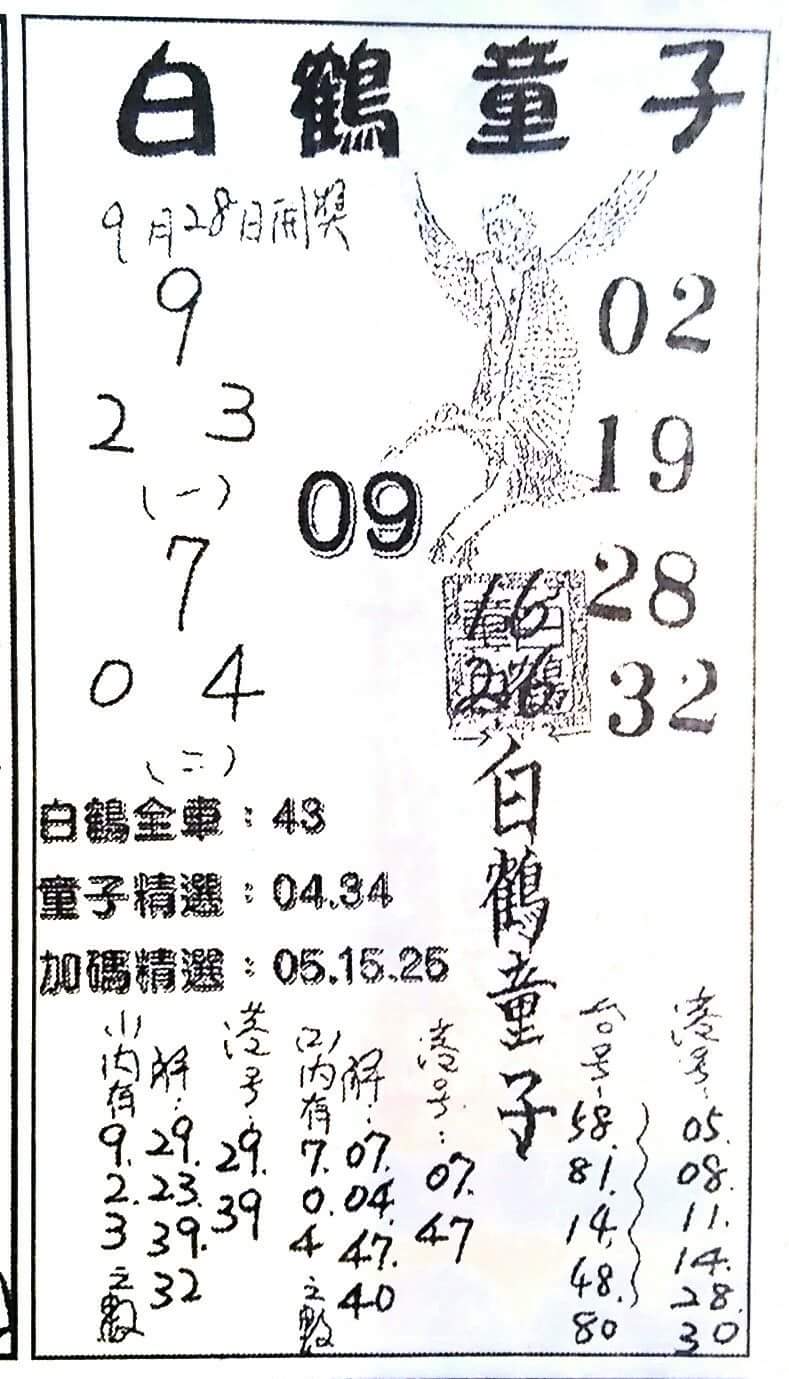 白鶴童子
9月28日開獎
9
2 3
(一)
7
0 4
(二)
09
02
19
28
32
16
26
白鶴童子
白鶴全車：43
童子精選：04.34
加碼精選：05.15.25
(1)內有9.2.3之數
解：29.23.39.32
港号：29.39
(2)內有7.0.4之數
解：07.04.47.40
港号：07.47
号：58.81.14.48.80
港号：05.08.11.14.28.30